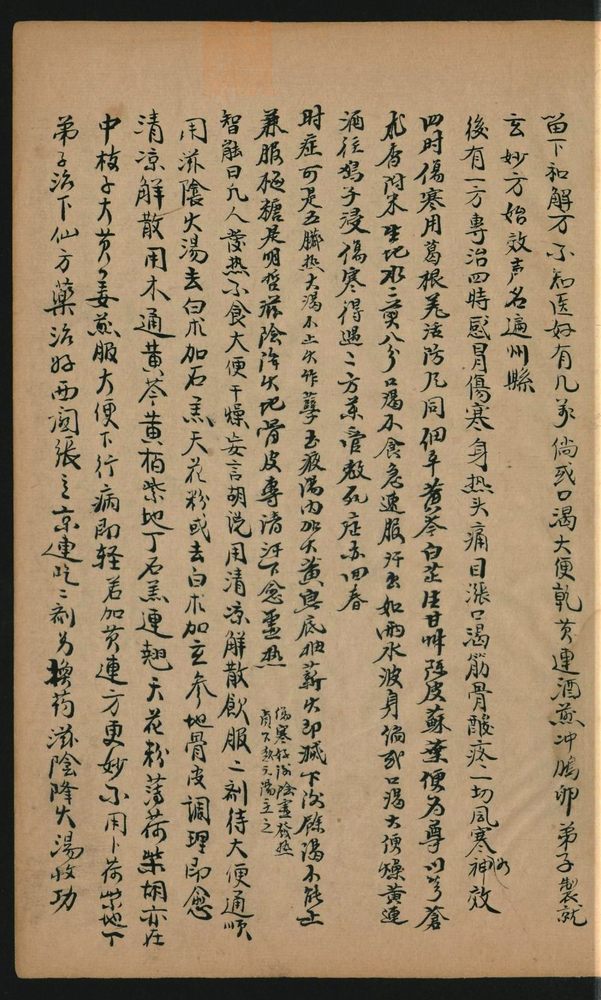 留下和解方不知医好有几家倘或口渴大便乾黄連酒煎冲鴨卵弟子製就
玄妙方始效声名遍州縣
後有一方專治四時感冒傷寒身热头痛目漲口渴筋骨酸疼一切風寒神效
四时傷寒用葛根羌活防风同細辛黄芩白芷生甘艸陈皮蘇葉便为尊川芎蒼
术香附米生地水二碗八分口渴不食急速服汗出如雨水波身倘或口渴大便燥黄連
酒往鴨子浸傷寒得遇二方藥管教死症亦回春
时症可是五臟热大渴不止火作孽玉液湯内加大黄與底抽薪火即減下後餘渴不能止
兼服極糖是明哲滋陰降火地骨皮專清汗下愈虚热
傷寒好後陰虚發热
貞下熱元湯主之
智融曰凡人發热不食大便干燥妄言胡说用清凉解散飲服二剂待大便通順
用滋陰火湯去白术加石羔天花粉或去白术加玄參地骨皮調理即愈
清凉解散用木通黄芩黄栢紫地丁石羔連翹天花粉薄荷柴胡亦在
中枝子大黄姜煎服大便下行病即轻若加黄連方更妙不用卜荷紫地丁
弟子治下仙方藥治好西阁張立京連吃二剂为换药滋陰降火湯收功